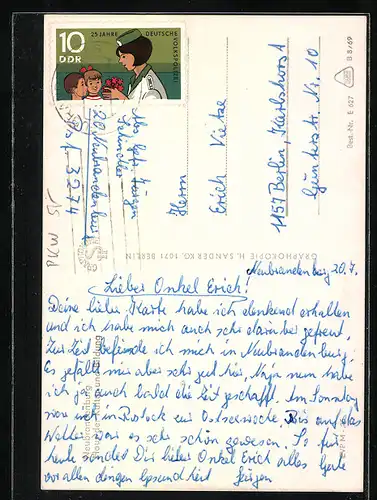 10
DDR
25 JAHRE DEUTSCHE
VOLKSPOLIZEI
Abs. Jürgen
Schindler
20 Neubrandenburg
3274
Herrn
Erich
1157 Berlin, Karlshorst
Str. Nr. 10
B 8/69
Best.-Nr. E 627
GRAPHOKOPIE H. SANDER KG. 1071 BERLIN
Neubrandenburg 20.7.
Lieber Onkel Erich!
Deine liebe Karte habe ich dankend erhalten
und ich habe mich auch sehr darüber gefreut.
Zur Zeit befinde ich mich in Neubrandenburg.
Es gefällt mir aber sehr gut hier, Naja nun habe
ich ja auch bald die Zeit geschafft. Am Sonntag
war ich in Rostock zur Ostseewoche. Bis auf das
Wetter war es sehr schön gewesen. So für
heute sendet Dir lieber Onkel Erich alles Gute
vor allen dingen Gesundheit Jürgen